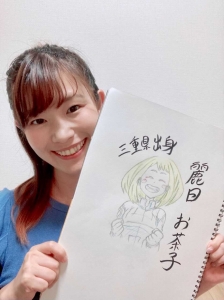 三重県出身
麗日
お茶子